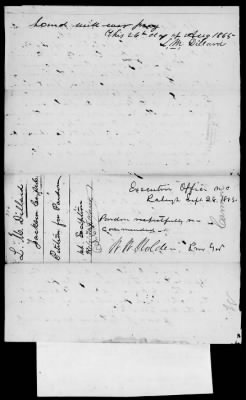 bound will ever pray
This 26th day of Aug 1865
L. M. Dillard
L. M. Dillard
Jackson
Petition for Pardon
1st Exception
Executive Office N C
Raleigh Sept 28. 1865.
Pardon respectfully re-
commended.
W W Holden Prov Gov